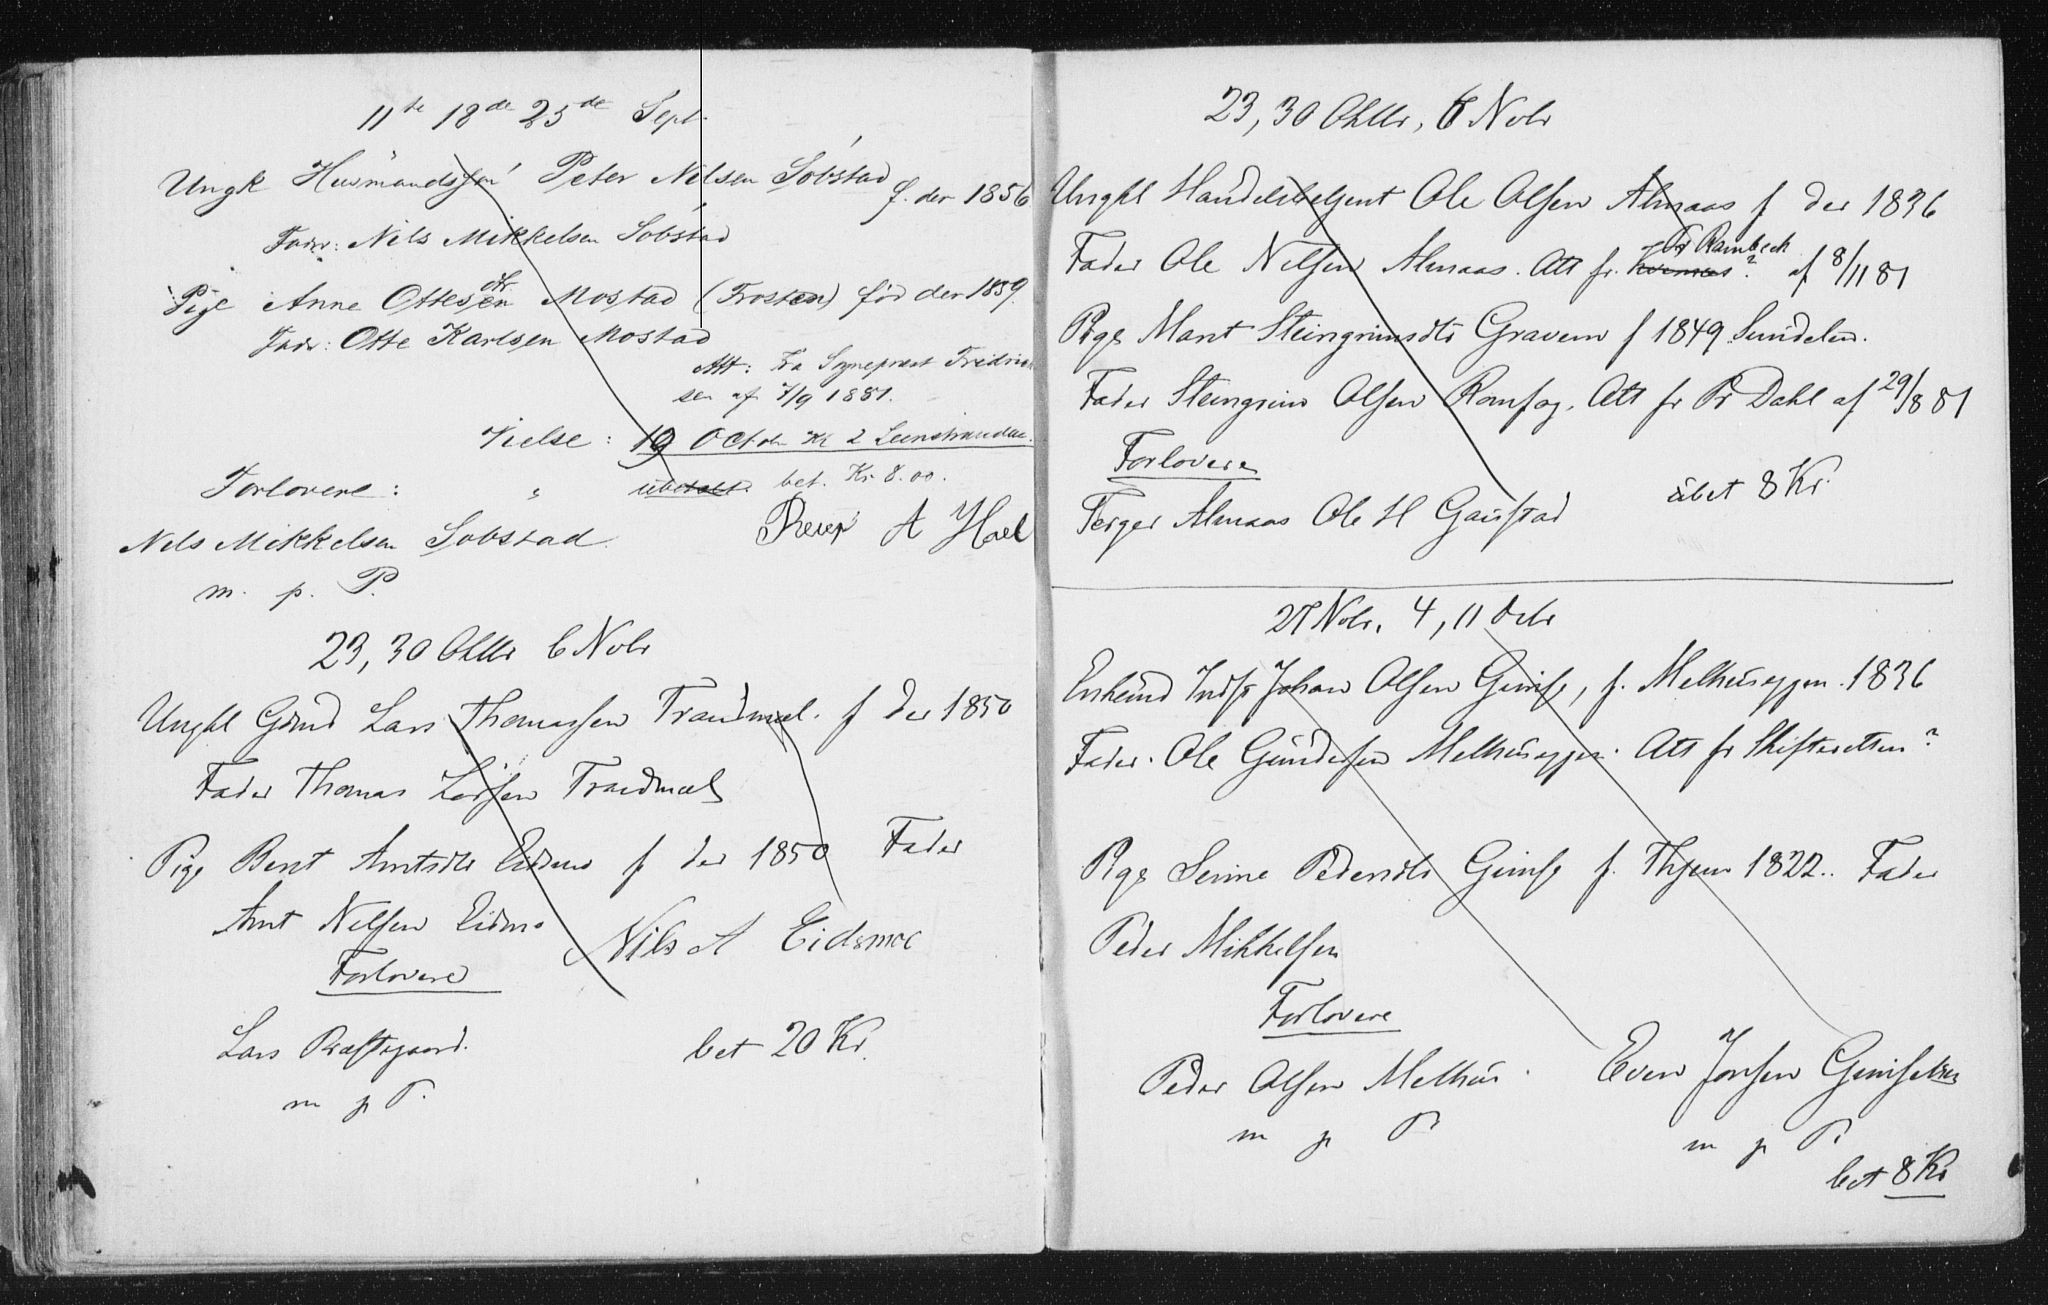 11te 18de 25de Sept.
Ungk Husmandssøn Peter Nilsen Søbstad f. der 1856
Fader: Nils Mikkelsen Søbstad
Pige Anne Ottesen dtr. Mostad (Trosten) før der 1859.
Fader: Otte Karlsen Mostad
Att: fra Sognepræst Fredrick
sen af 7/9 1881.
Vielse: 19 Octobr Kl 2 Leinstranden.
Forlovere: " ubetalt. bet. Kr 8.00.
Nels Mikkelsen Sobstad. A Hoel
m. p. P.
23, 30 Oktbr 6 Nobr
Ungkl Gdmd Lars Thomassen Traudmæl. f der 1850
Fader Thomas Larsen Traedmæl
Pige Berit Arntsdtr Eidsmo f der 1850 Fader
Arnt Nelsen Eidsmo
Nils A Eidsmoe
Forlovere
Lars Præstegaard. bet 20 Kr.
m p P.
23, 30 Oktbr, 6 Nobr
Ungkl Handelsbetjent Ole Olsen Almaas f der 1836
Fader Ole Nelsen Almaas. Att fr. Kvernes? Pr Rambeck af 8/11 81
Pige Marit Steingrimsdtr Gravem f 1849 Sundalen.
Fader Steingrim Olsen Romfog. Att fr Pr Dahl af 29/8 81
Forlovere
Ferger Almaas Ole H Gaustad ubet 8 Kr.
27 Nobr. 4, 11 Decbr
Enkemd Indst Johan Olsen Gimse, f. Melhuseggen 1836
Fader. Ole Gundersen Melhuseggen. Att fr Skifteretten?
Pige Serine Pedersdtr Gimse f. Thjem 1822. Fader
Peder Mikkelsen
Forlovere
Peder Olsen Melhus. Even Jonsen Gimse
m p P. m p P.
bet 8 Kr